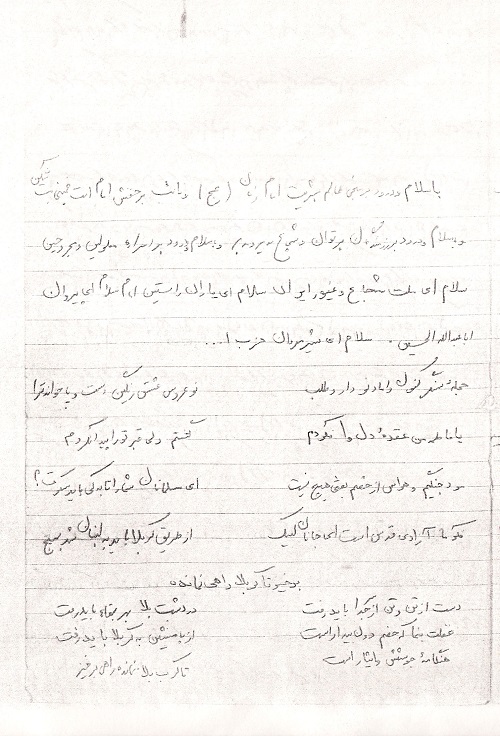 باسلام و درود بر منجی عالم بشریت امام زمان (عج) و نائب بر حقش امام امت خمینی بت شکن
و با سلام و درود بر رزمندگان پرتوان و شجاع و با سلام و درود بر اسراء معلولین و مجروحین
سلام ای ملت شجاع و غیور ایران سلام ای یاران راستین امام سلام ای پیروان
اباعبدالله الحسین . سلام ای شیر مردان حزب ا...
حجله سنگر کنون داماد نو دارد طلب نو عروس عشق رنگین دست و پا خواند ترا
یا فاطمه من عقده دل وا نکردم گشتم ولی قبر تو را پیدا نکردم
سر و جنگیم و هراس از خصم بعثی هیچ نیست ای مسلمانان شما را تا به کی باید سکوت؟
مکه آزادی قدس است ای جانان لیک از طریق کربلا باید به لبنان شد بسیج
برخیز تا کربلا راهی نمانده
دست از تن و تن از جدا باید رفت در دشت بلا بهر بقاء باید رفت
غفلت منما که خصم دون بیدار است از با به کربلا باید رفت
هنگامه جوشش و ایثار است
تا کرب بلا نمانده راهی برخیز